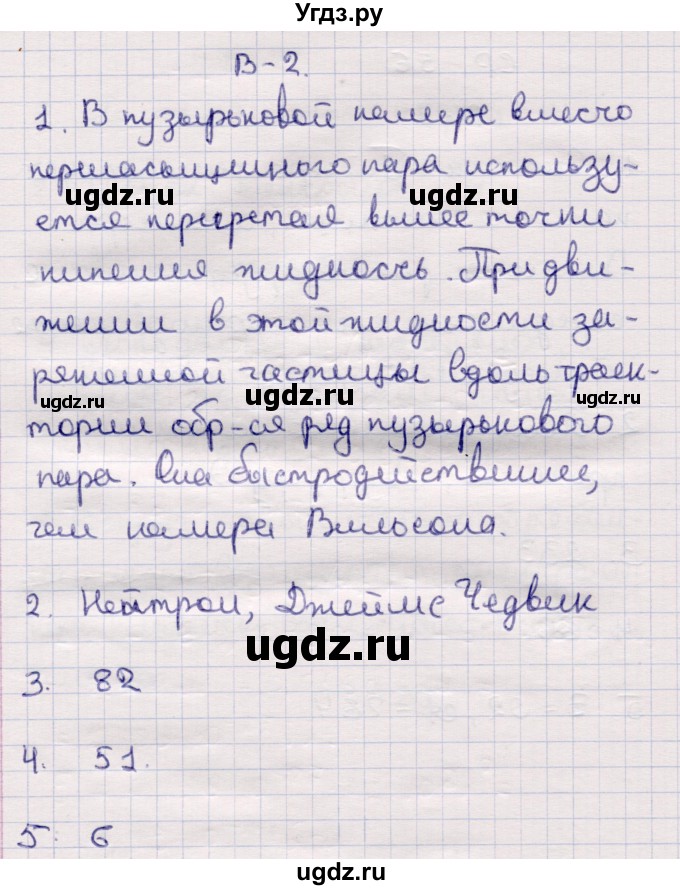 Угдз.ру
В-2.
1. В пузырьковой камере вместо
перенасыщенного пара использу-
ugdz.ru ugdz.ru
ется перегретая выше точки
кипения жидкость. При дви-
жении в этой жидкости за-
ряженной частицы вдоль траек-
ugdz.ru ugdz.ru ugdz.ru
тории обр-ся ряд пузырькового
пара. Она быстродейственнее,
чем камера Вильсона.
2. Нейтрон, Джеймс Чедвик
ugdz.ru
3. 82
4. 51.
5. 6
ugdz.ru